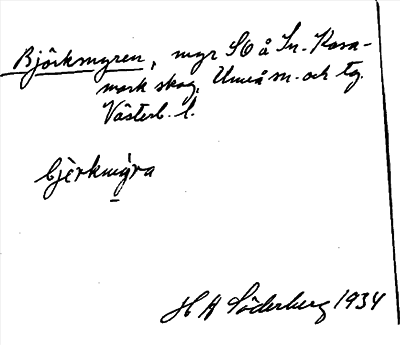 Björkmyren, myr SO å In. Kasa-
mark skog, Umeå sn. och tg.
Västerb. l.
bjèrkmýra
H A Söderberg 1934